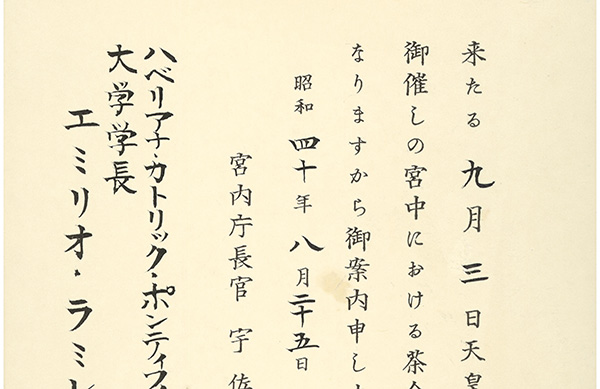 来たる九月三日天皇
御催しの宮中における茶会
なりますから御案内申し
昭和四十年八月二十五日
宮内庁長官 宇佐
ハベリアナ・カトリック・ポンティフ
大学学長
エミリオ・ラミレ